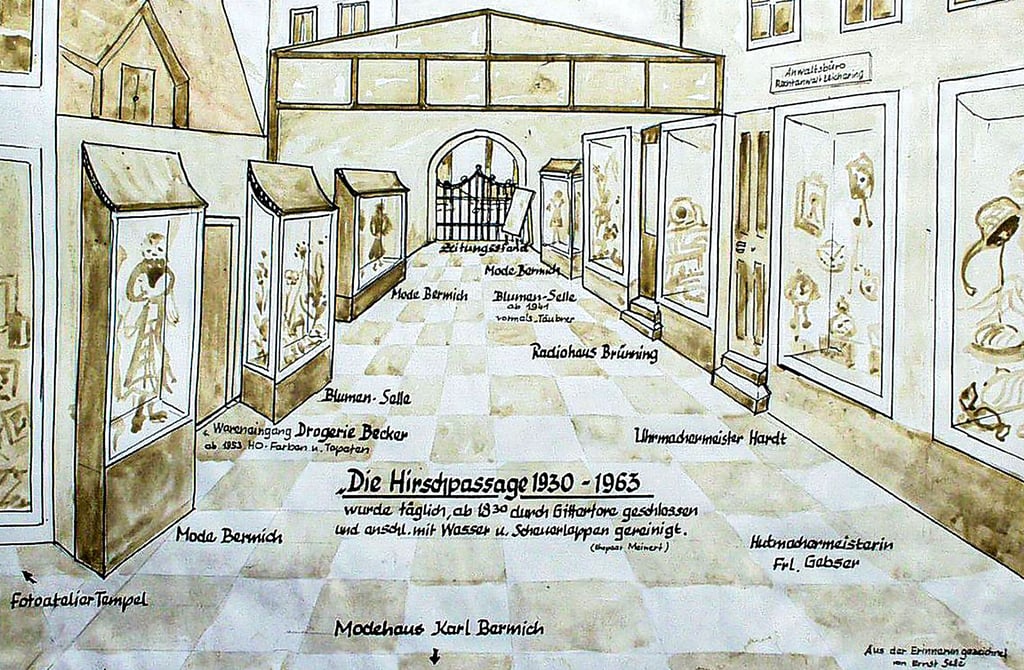 Anwaltsbüro
Rechtanwalt Wichering
Zeitungsstand
Mode Bermich
Mode Bermich
Blumen-Selle
ab 1941
vormals Täubner
Radiohaus Brünning
Blumen-Selle
Wareneingang Drogerie Becker
ab 1953 HO-Farben u. Tapeten
Uhrmachermeister Hardt
„Die Hirschpassage 1930 - 1963
wurde täglich, ab 18³⁰ durch Gittertore geschlossen
und anschl. mit Wasser u. Scheuerlappen gereinigt.
(Ehepaar Meinert)
Mode Bermich
Hutmachermeisterin
Frl. Gebser
Fotoatelier Tempel
Modehaus Karl Bermich
Aus der Erinnerung gezeichnet
von Ernst